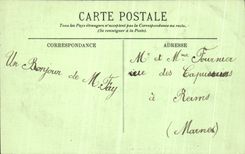 CARTE POSTALE
Tous les Pays étrangers n'acceptent pas la Correspondance au recto.
(Se renseigner à la Poste)
CORRESPONDANCE
ADRESSE
Un Bonjour de M. Fay
Mr et Mme Fournier
rue des Capucins
à Reims
(Marne)